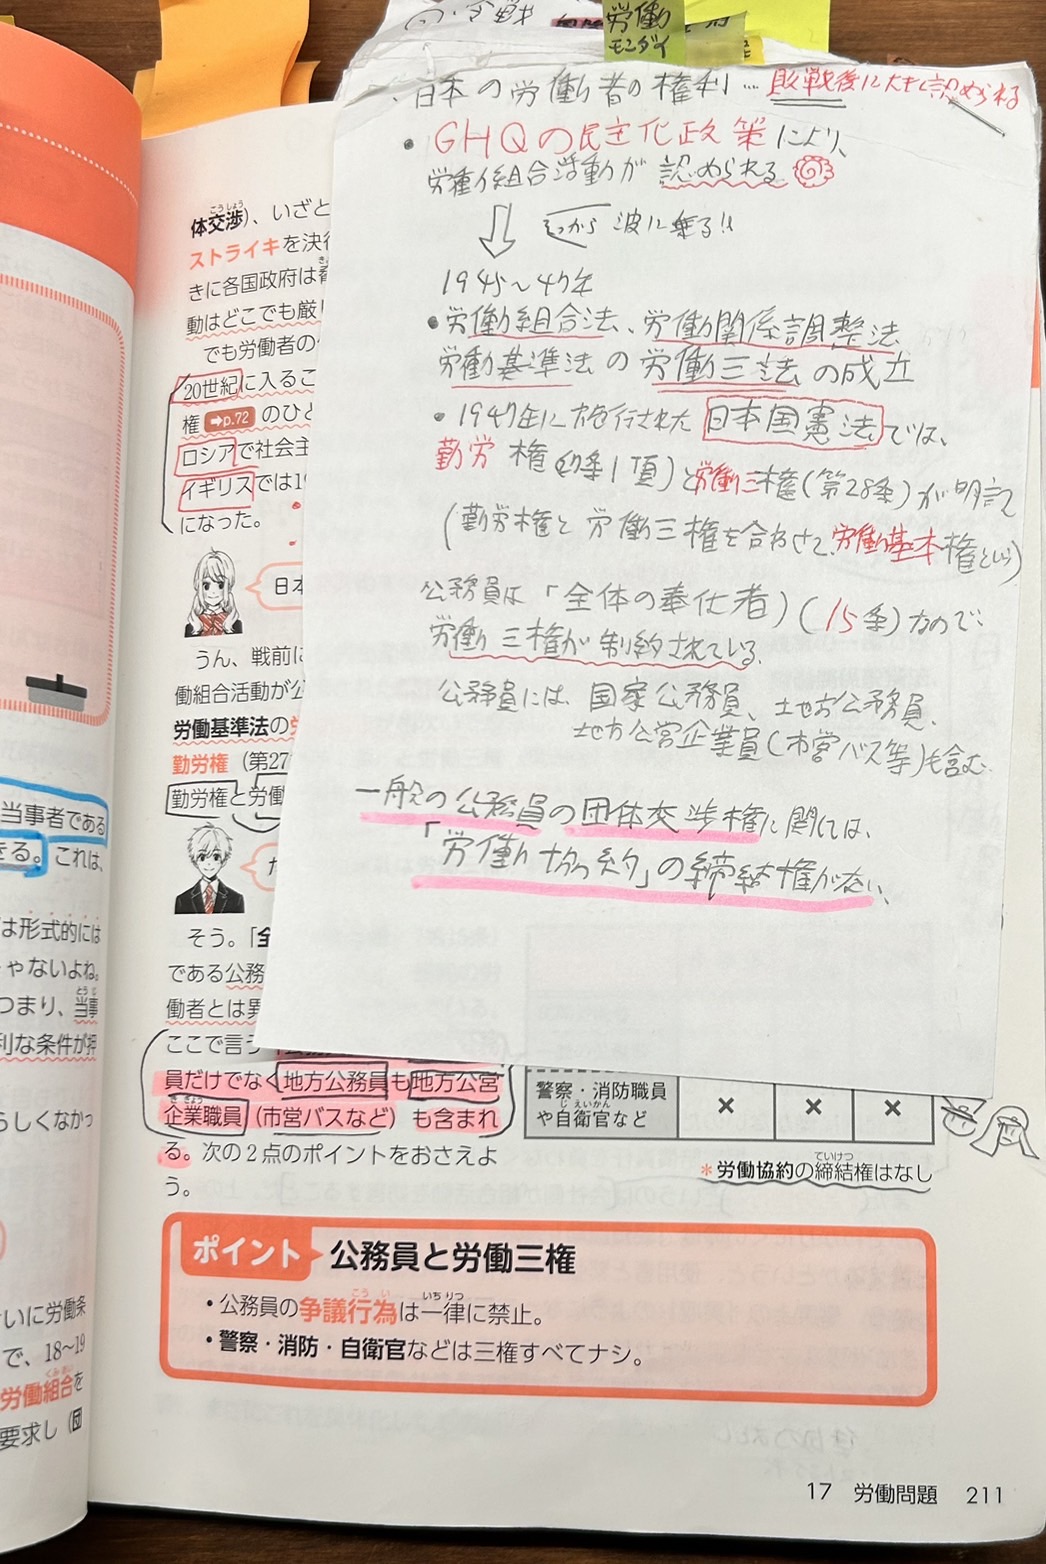 労働
モンダイ
日本の労働者の権利…敗戦後に大きく認められる
・GHQの民主化政策により、
労働組合活動が認められる
そこから波に乗る!!
1945〜47年
・労働組合法、労働関係調整法
労働基準法の労働三法の成立
・1947年に施行された日本国憲法では、
勤労権(27条1項)と労働三権(第28条)が明記
(勤労権と労働三権を合わせて、労働基本権という)
公務員は「全体の奉仕者」(15条)なので、
労働三権が制約されている。
公務員には、国家公務員、地方公務員、
地方公営企業員(市営バス等)も含む。
一般の公務員の団体交渉権に関しては、
「労働協約」の締結権がない、
体交渉)、いざと
ストライキを決行
きに各国政府は脅
動はどこでも厳し
でも労働者の
20世紀に入るこ
権 ➡p.72 のひと
ロシアで社会主
イギリスでは19
になった。
日本
うん、戦前に
働組合活動が公
労働基準法の労
勤労権(第27
勤労権と労働
た
そう。「全
である公務
働者とは異
ここで言う
員だけでなく地方公務員も地方公営
企業職員(市営バスなど)も含まれ
る。次の2点のポイントをおさえよ
う。
警察・消防職員
や自衛官など × × ×
*労働協約の締結権はなし
ポイント 公務員と労働三権
・公務員の争議行為は一律に禁止。
・警察・消防・自衛官などは三権すべてナシ。
17 労働問題 211
当事者である
きる。これは、
は形式的には
ゃないよね。
つまり、当事
利な条件が押
らしくなかっ
せいに労働条
で、18〜19
労働組合を
要求し(団